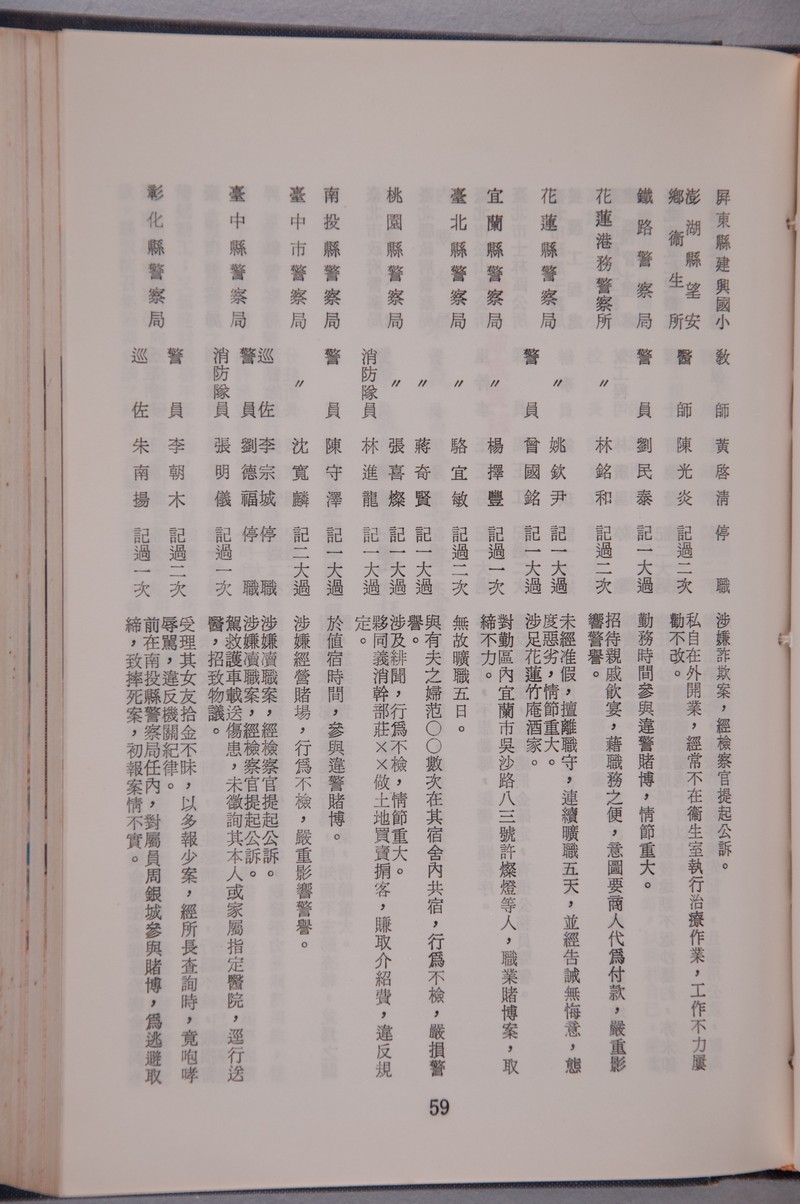 屏東縣建興國小 教師 黃啓清 停職 涉嫌詐欺案，經檢察官提起公訴。
澎湖縣望安鄉衞生所 醫師 陳光炎 記過二次 私自在外開業，經常不在衞生室執行治療作業，工作不力屢
勸不改。
鐵路警察局 警員 劉民泰 記一大過 勤務時間參與違警賭博，情節重大。
花蓮港務警察所 〃 林銘和 記過二次 招待親戚飲宴，藉職務之便，意圖要商人代爲付款，嚴重影
響警譽。
花蓮縣警察局 〃 姚欽尹 記一大過 未經准假，擅離職守，連續曠職五天，並經告誡無悔意，態
度惡劣，情節重大。
警員 曾國銘 記一大過 涉足花蓮竹庵酒家。
宜蘭縣警察局 〃 楊擇豐 記過一次 對勤區內宜蘭市吳沙路八三號許燦燈等人，職業賭博案，取
締不力。
臺北縣警察局 〃 駱宜敏 記過二次 無故曠職五日。
桃園縣警察局 〃 蔣奇賢 記一大過 與有夫之婦范〇〇數次在其宿舍內共宿，行爲不檢，嚴損警
譽。
〃 張喜燦 記一大過 涉及緋聞，行爲不檢，情節重大。
消防隊員 林進龍 記一大過 夥同義消幹部莊××做土地買賣捐客，賺取介紹費，違反規
定。
南投縣警察局 警員 陳守澤 記一大過 於值宿時間，參與違警賭博。
臺中市警察局 〃 沈寬麟 記二大過 涉嫌經營賭場，行爲不檢，嚴重影響警譽。
臺中縣警察局 巡佐 李宗城 停職 涉嫌瀆職案，經檢察官提起公訴。
警員 劉德福 停職 涉嫌瀆職案，經檢察官提起公訴。
消防隊員 張明儀 記過一次 駕救護車載送傷患，未徵詢其本人或家屬指定醫院，逕行送
醫，招致物議。
彰化縣警察局 警員 李朝木 記過二次 受理其女友拾金不昧，以多報少案，經所長查詢時，竟咆哮
辱罵，違反機關紀律。
巡佐 朱南揚 記過一次 前在南投縣警察局任內，對屬員周銀城參與賭博，爲逃避取
締，致摔死案，初報案情不實。
59